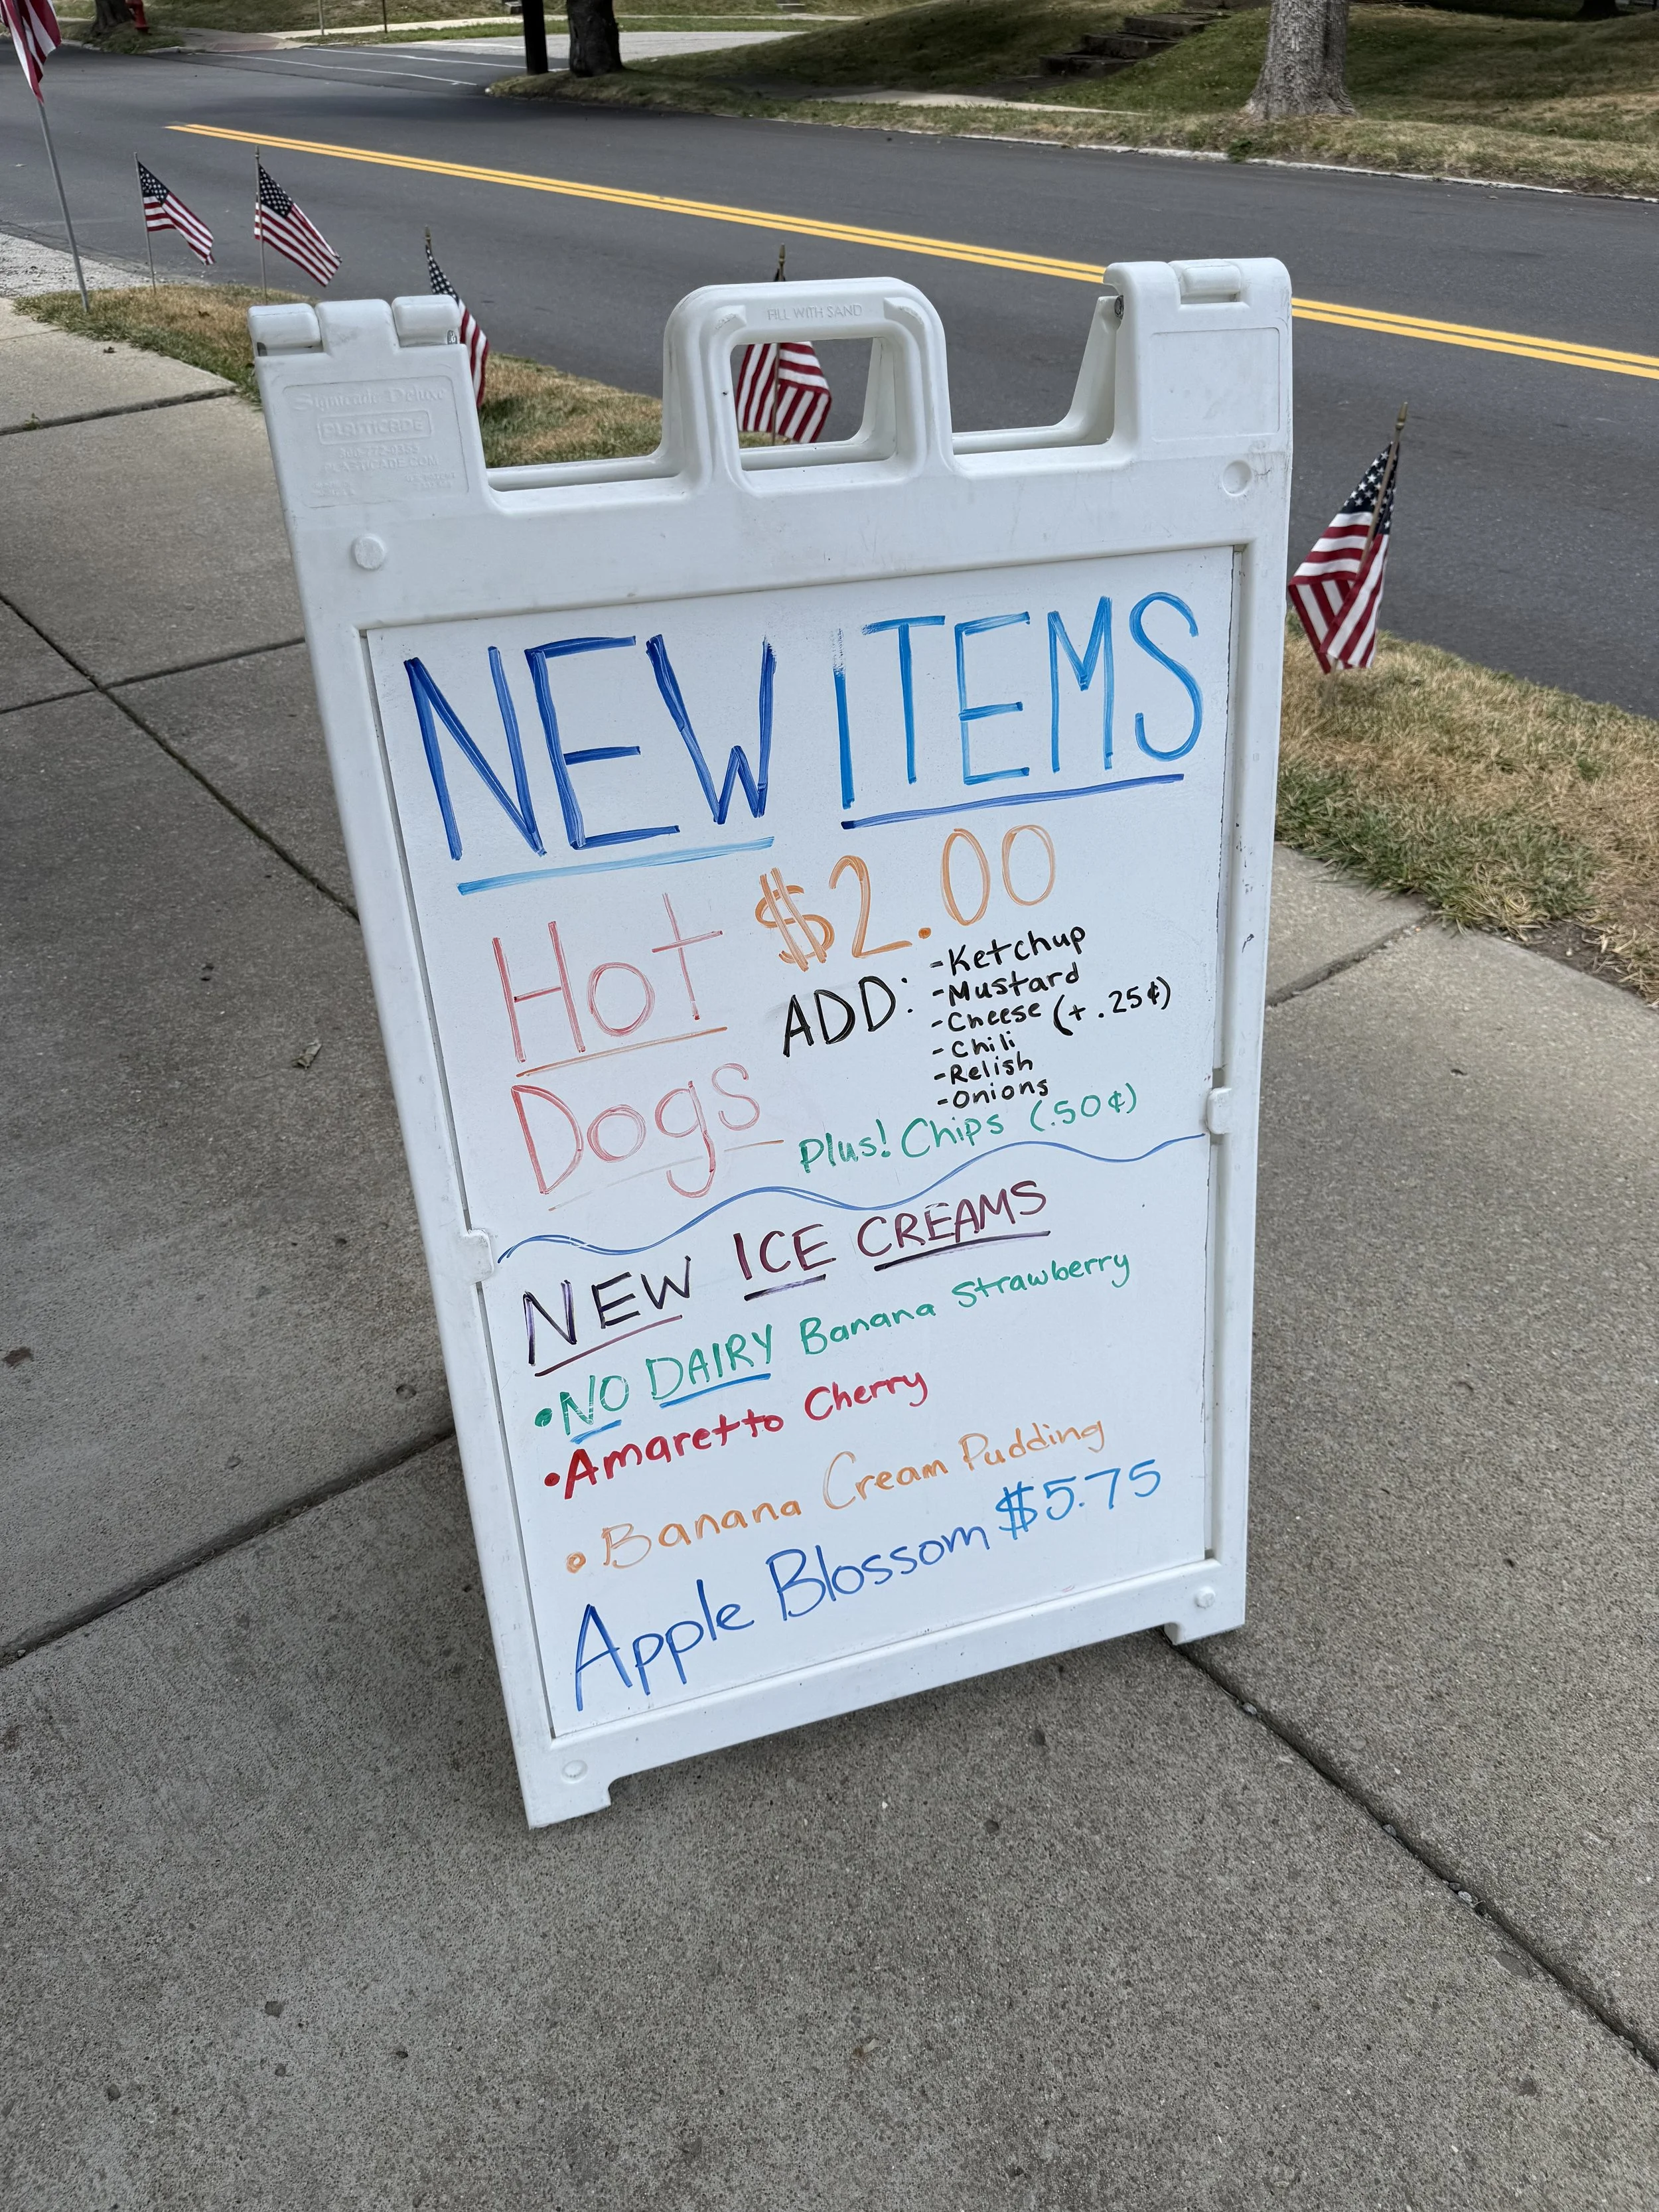 FILL WITH SAND
Signicade Deluxe
PLASTICADE
PLASTICADE.COM
NEW ITEMS
Hot $2.00
Dogs
ADD: -Ketchup
-Mustard
-Cheese (+.25¢)
-Chili
-Relish
-Onions
Plus! Chips (.50¢)
NEW ICE CREAMS
•NO DAIRY Banana Strawberry
•Amaretto Cherry
•Banana Cream Pudding
Apple Blossom $5.75